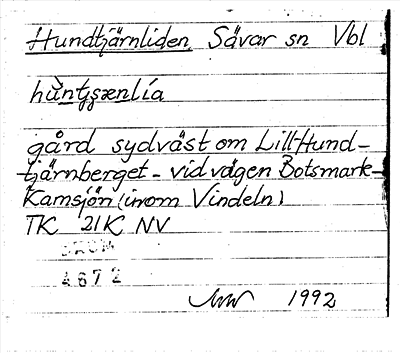 Hundtjärnliden, Sävar sn Vbl
hùntjsænlía
gård sydväst om Lill-Hund-
tjärnberget - vid vägen Botsmark-
Kamsjön (inom Vindeln)
TK 21K NV
4672
1992